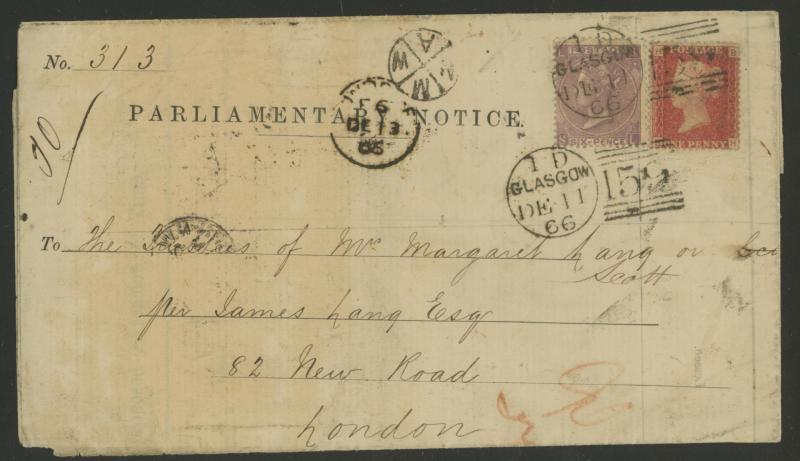 No. 313
A
W M
PARLIAMENTARY NOTICE.
70
F6
DE 13
66
POSTAGE
SIX-PENCE
S L
POSTAGE
ONE PENNY
1 D
GLASGOW
DE 11
66
1 D
GLASGOW
DE 11
66
15A
To The Trustees of Mrs Margaret Lang or
Scott
per James Lang Esq
82 New Road
London